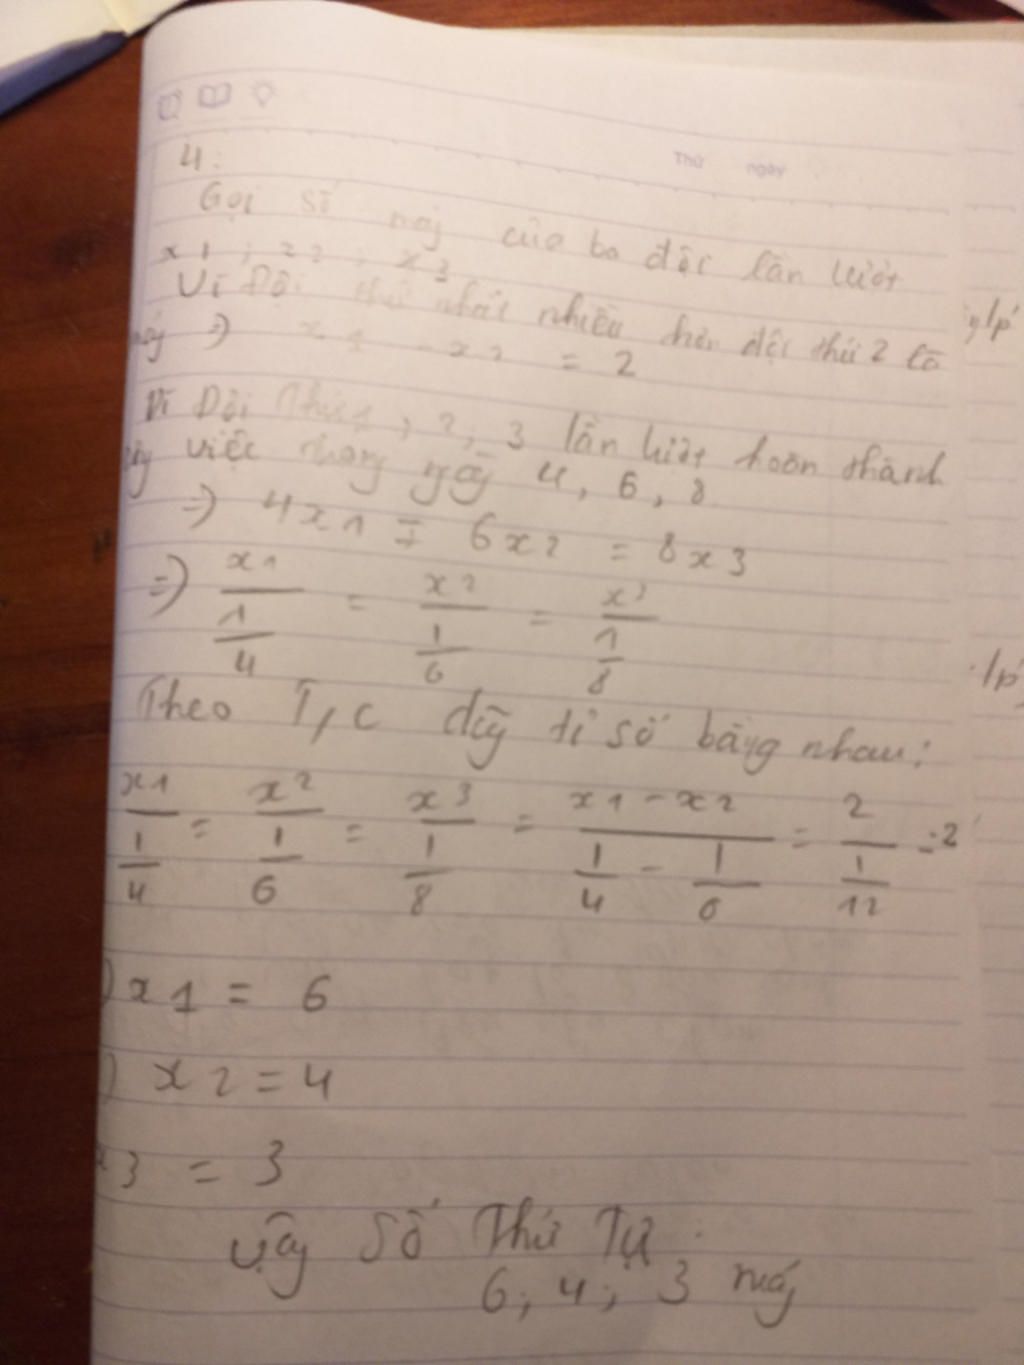 Thứ ngày
4:
Gọi số máy của ba đội lần lượt
x1 ; x2 ; x3
Vì Đội thứ nhất nhiều hơn đội thứ 2 là
máy => x1 - x2 = 2
Vì Đội Thứ 1, 2, 3 lần lượt hoàn thành
việc trong ngày 4, 6, 8
=> 4x1 = 6x2 = 8x3
=> x1/(1/4) = x2/(1/6) = x3/(1/8)
Theo T/c dãy tỉ số bằng nhau:
x1/(1/4) = x2/(1/6) = x3/(1/8) = (x1-x2)/(1/4 - 1/6) = 2/(1/12) = 2
) x1 = 6
) x2 = 4
x3 = 3
Vậy Số Thứ Tự:
6; 4; 3 máy